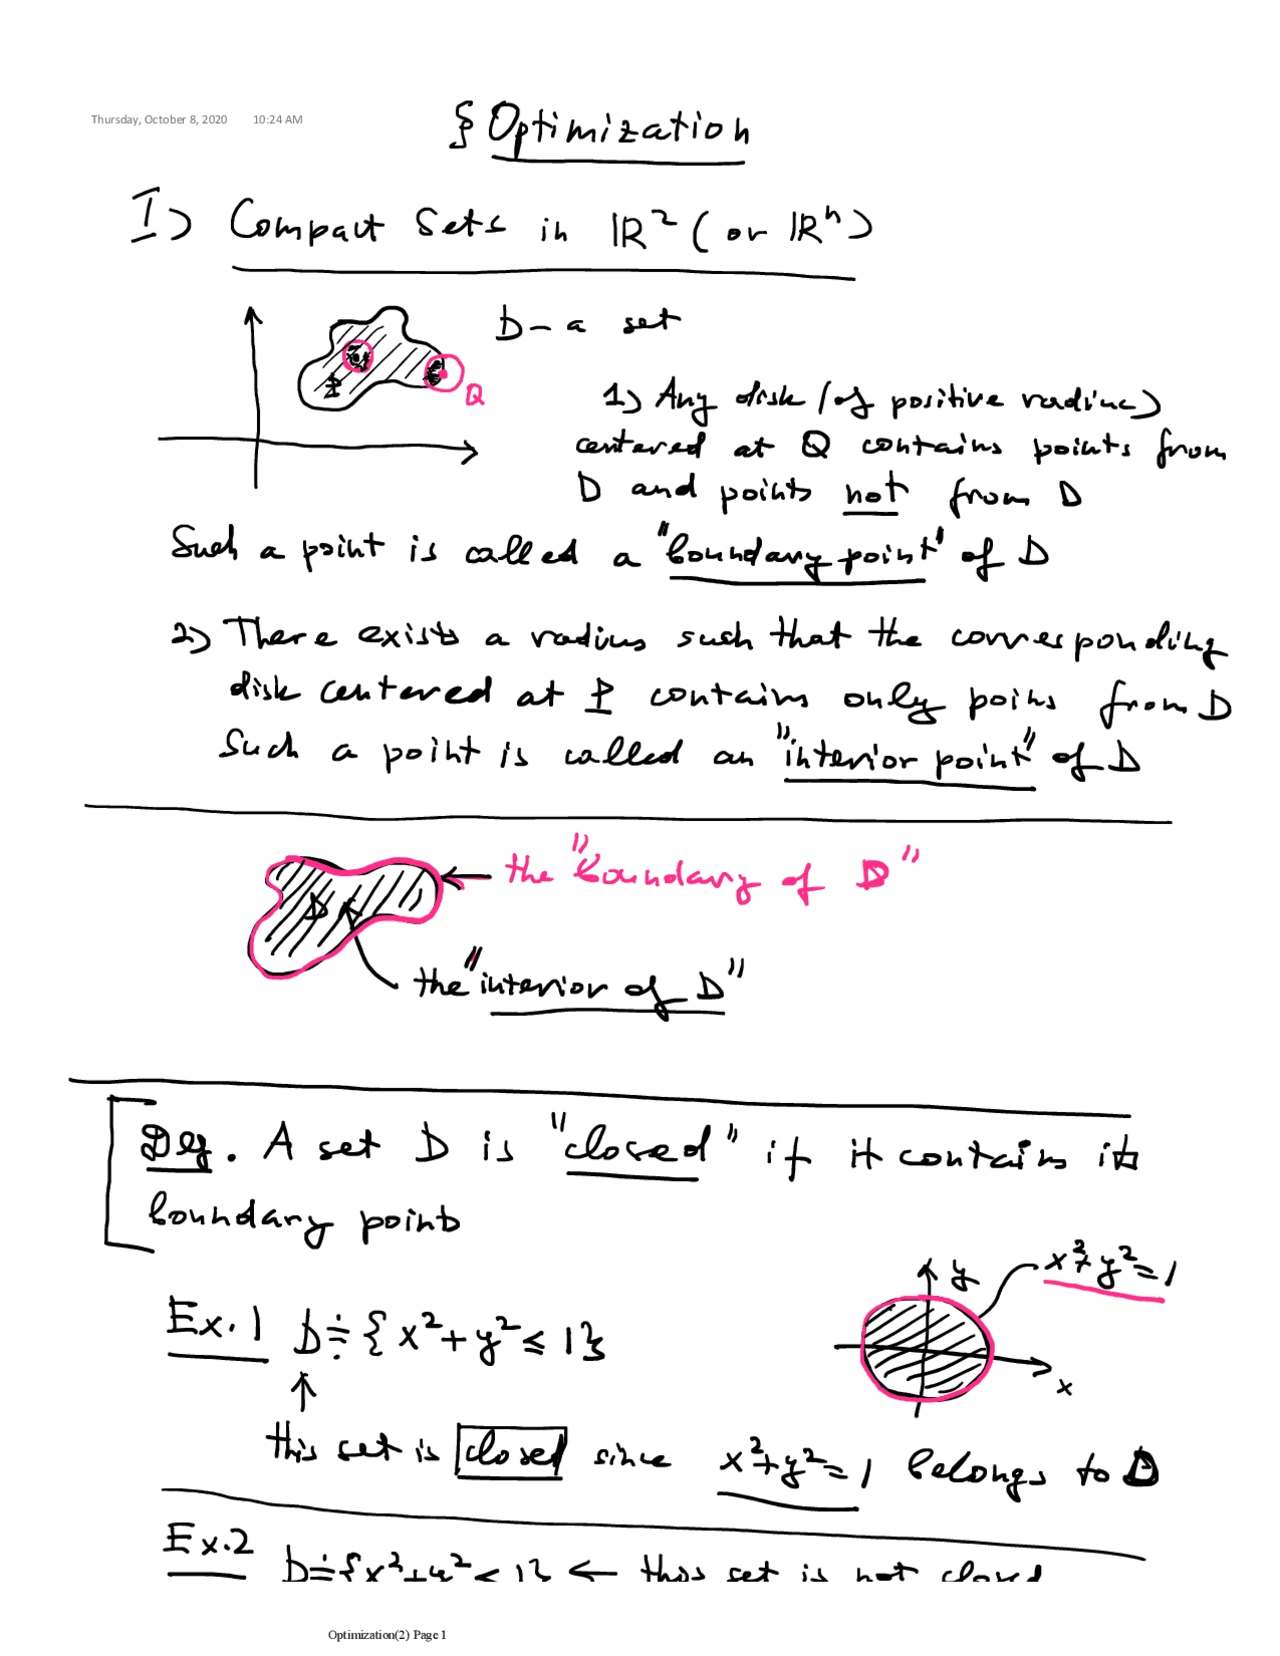 Thursday, October 8, 2020 10:24 AM
§ Optimization
I) Compact Sets in ℝ² (or ℝⁿ)
D - a set
P
Q
1) Any disk (of positive radius)
centered at Q contains points from
D and points not from D
Such a point is called a "boundary point" of D
2) There exists a radius such that the corresponding
disk centered at P contains only poins from D
Such a point is called an "interior point" of D
the "boundary of D"
D
the "interior of D"
Def. A set D is "closed" if it contains its
boundary points
x²+y²=1
y
Ex.1 D ≑ {x²+y² ≤ 1}
x
this set is closed since x²+y²=1 belongs to D
Ex.2 D ≑ {x²+y² < 1} ← this set is not closed
Optimization(2) Page 1